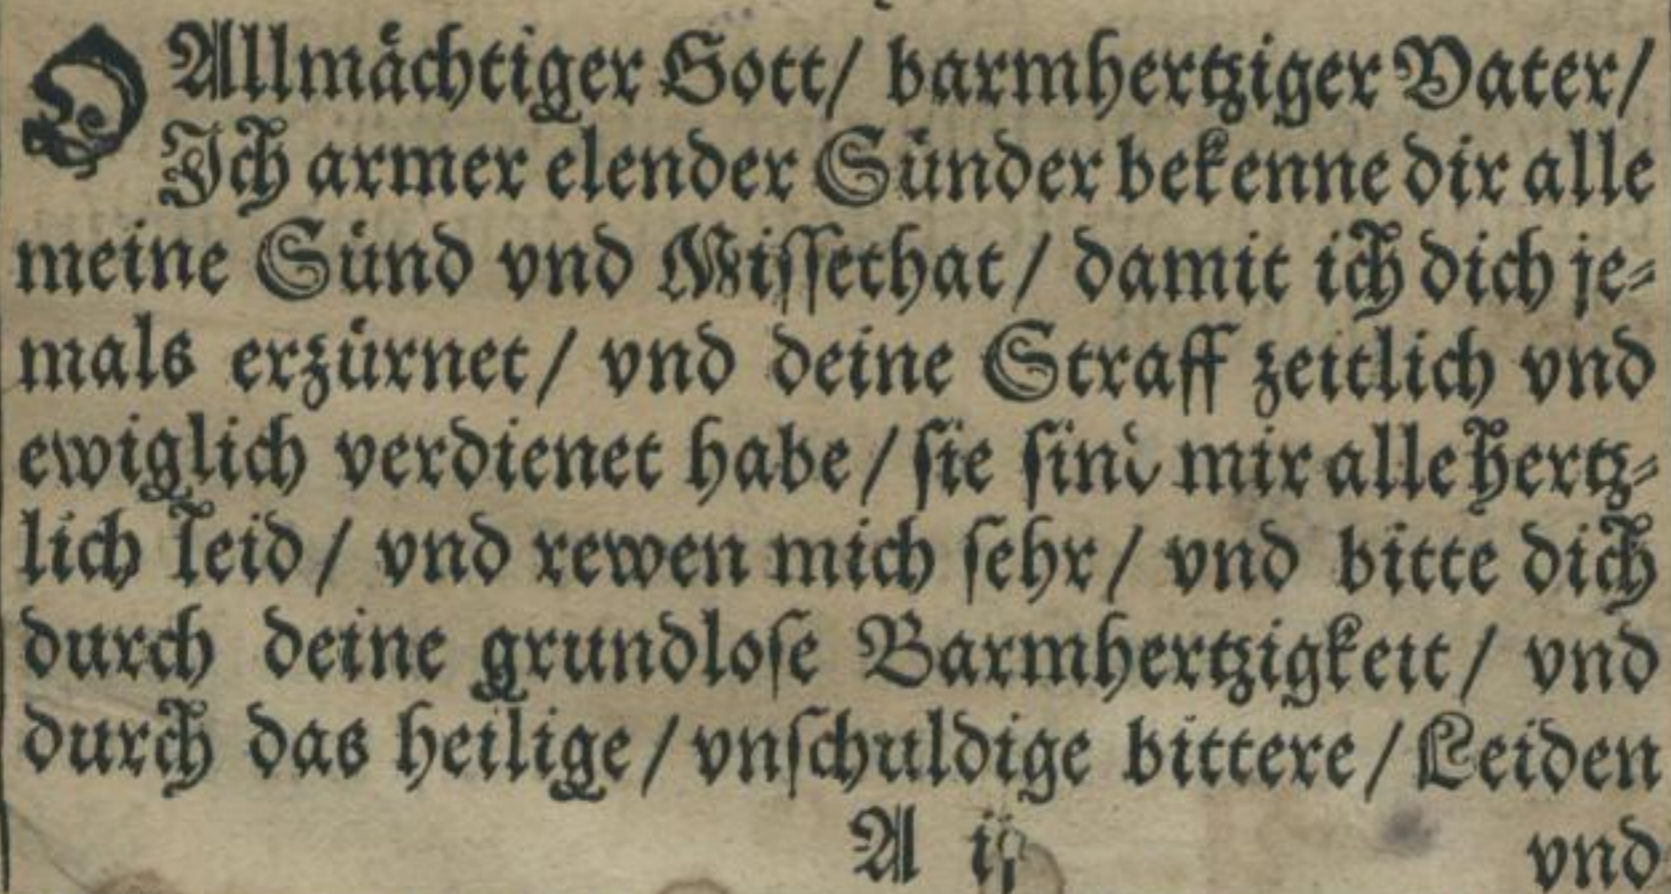 O Allmächtiger Gott/ barmhertziger Vater/
Ich armer elender Sünder bekenne dir alle
meine Sünd vnd Miſſethat/ damit ich dich je⸗
mals erzürnet/ vnd deine Straff zeitlich vnd
ewiglich verdienet habe/ ſie ſind mir alle hertz⸗
lich leid/ vnd rewen mich ſehr/ vnd bitte dich
durch deine grundloſe Barmhertzigkeit/ vnd
durch das heilige/ vnſchuldige bittere/ Leiden
A ij vnd